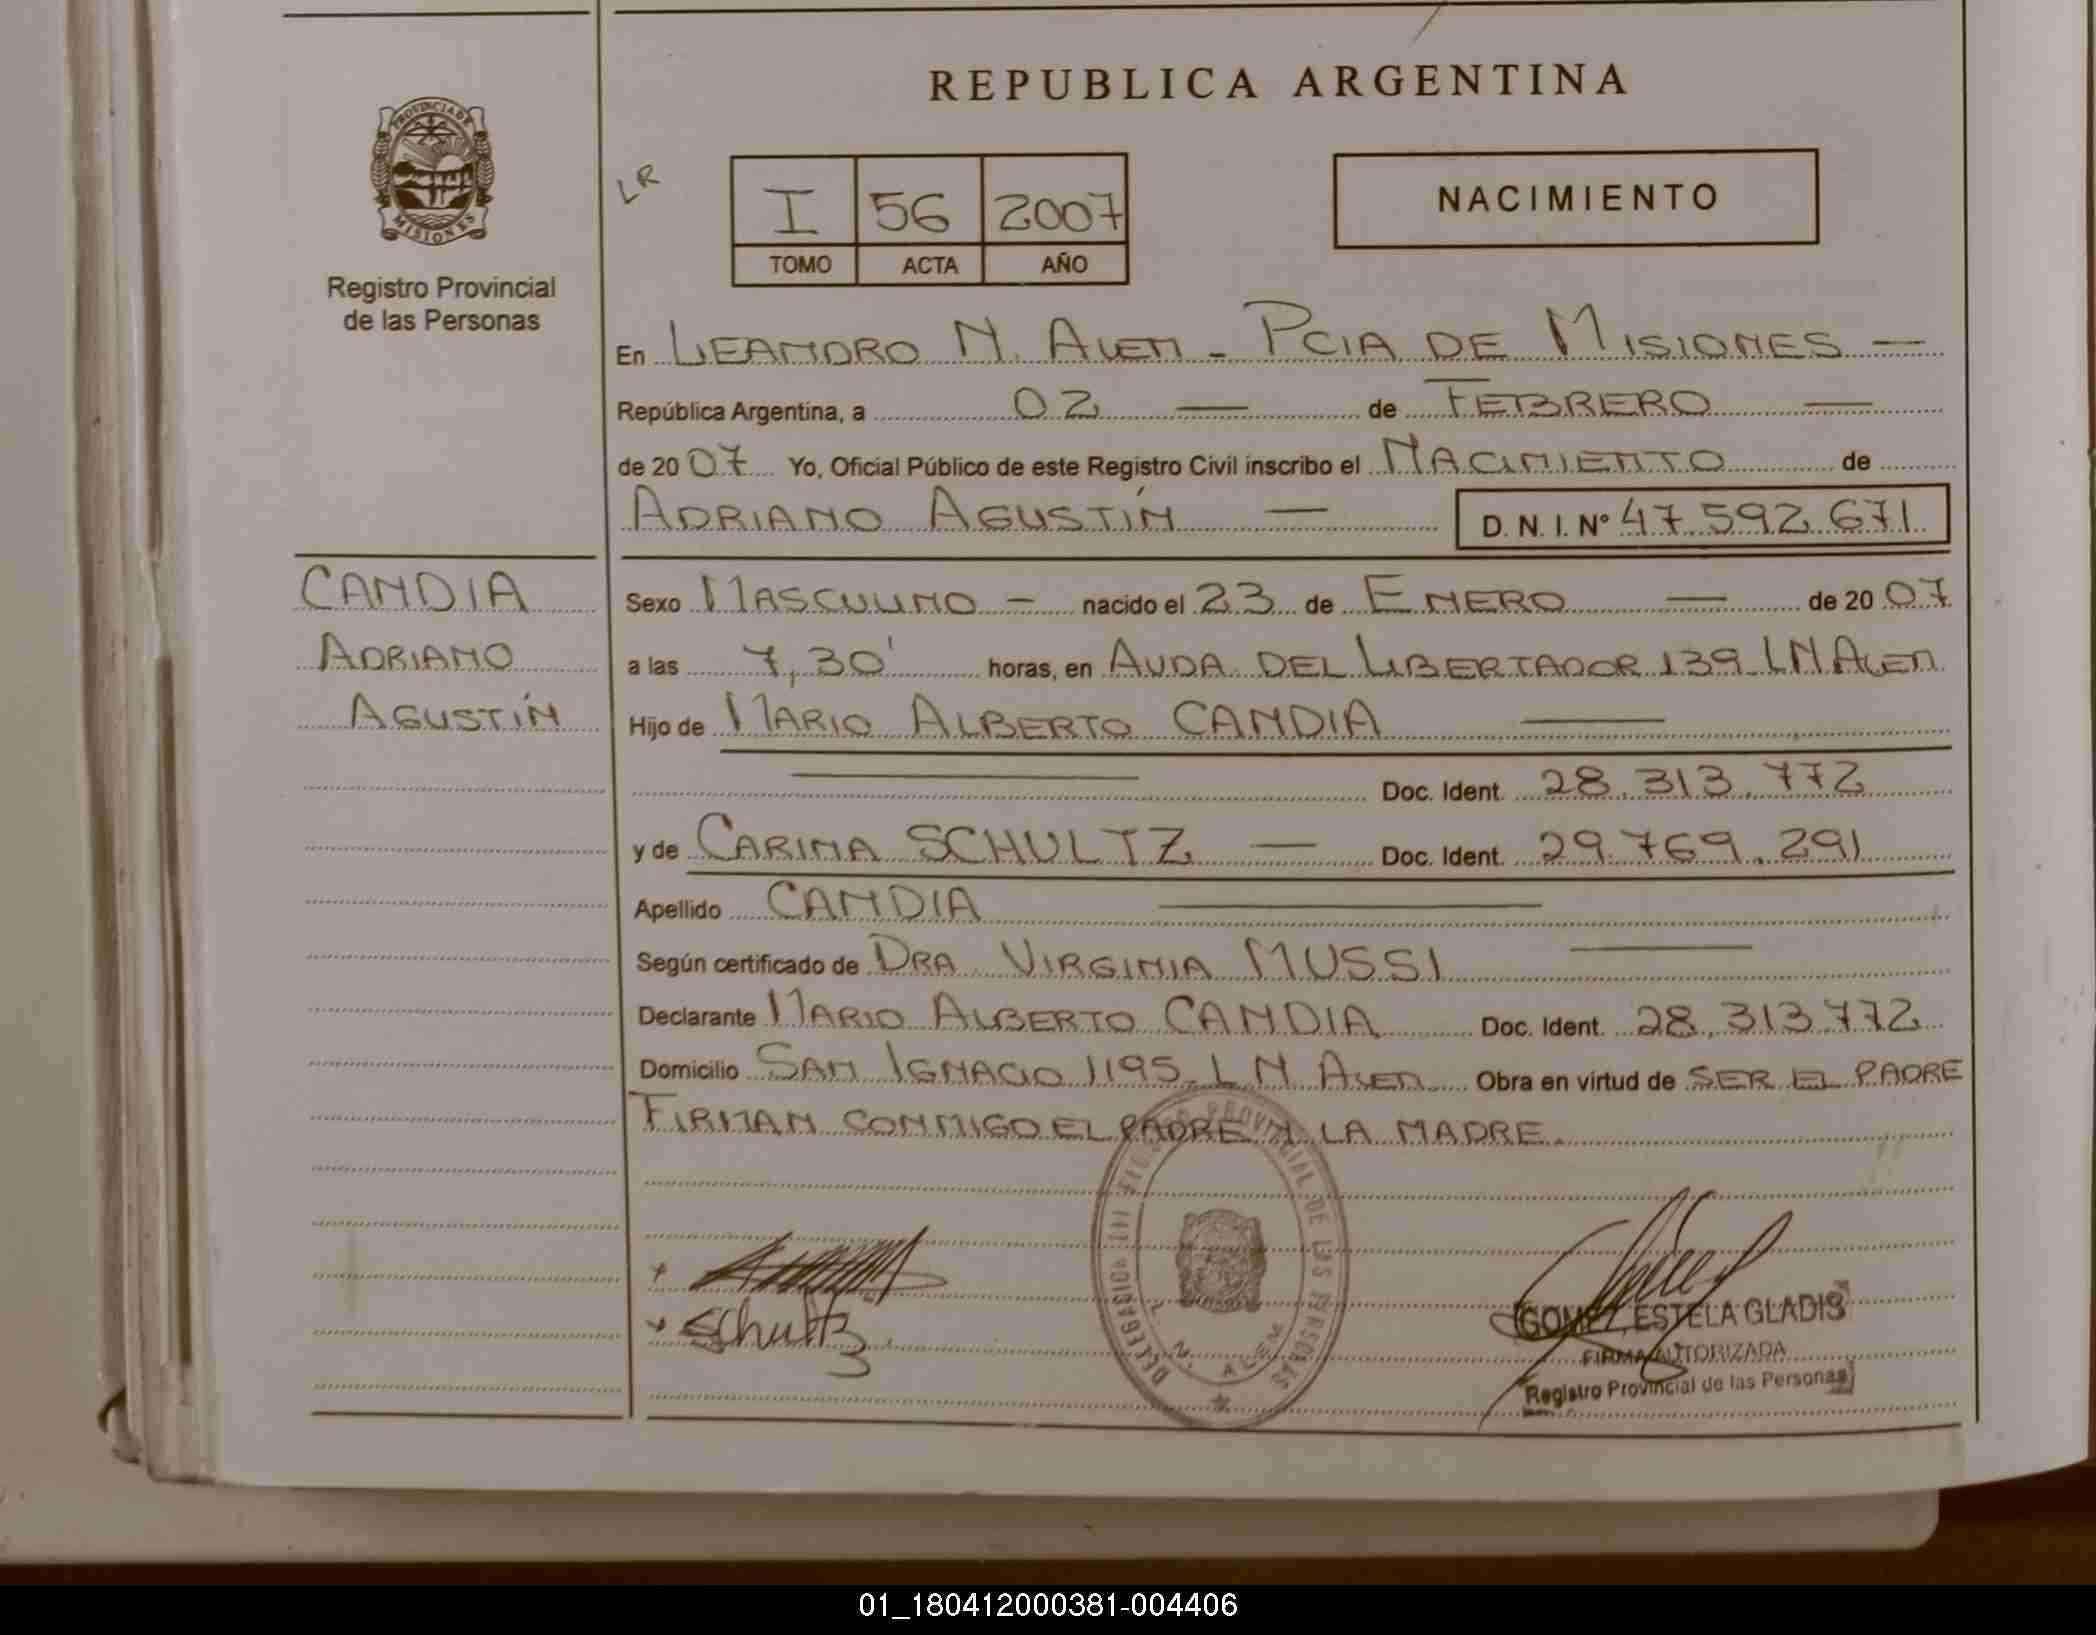 REPUBLICA ARGENTINA
PROVINCIA DE
MISIONES
Registro Provincial
de las Personas
LR
I 56 2007
TOMO ACTA AÑO
NACIMIENTO
En LEANDRO N. ALEM - PCIA DE MISIONES —
República Argentina, a 02 — de FEBRERO —
de 2007 Yo, Oficial Público de este Registro Civil inscribo el NACIMIENTO de
ADRIANO AGUSTÍN — D. N. I. Nº 47.592.671
CANDIA
ADRIANO
AGUSTÍN
Sexo MASCULINO - nacido el 23 de ENERO — de 2007
a las 7,30' horas, en AVDA DEL LIBERTADOR 139 LN ALEM
Hijo de MARIO ALBERTO CANDIA —
— Doc. Ident. 28.313.772
y de CARINA SCHULTZ — Doc. Ident. 29.769.291
Apellido CANDIA —
Según certificado de DRA VIRGINIA MUSSI —
Declarante MARIO ALBERTO CANDIA Doc. Ident. 28.313.772
Domicilio SAN IGNACIO 1195 - L N ALEM Obra en virtud de SER EL PADRE
FIRMAN CONMIGO EL PADRE Y LA MADRE.
Schultz
DELEGACION PROVINCIAL DE LAS PERSONAS
L. N. ALEM
GOMEZ, ESTELA GLADIS
FIRMA AUTORIZADA
Registro Provincial de las Personas
01_180412000381-004406